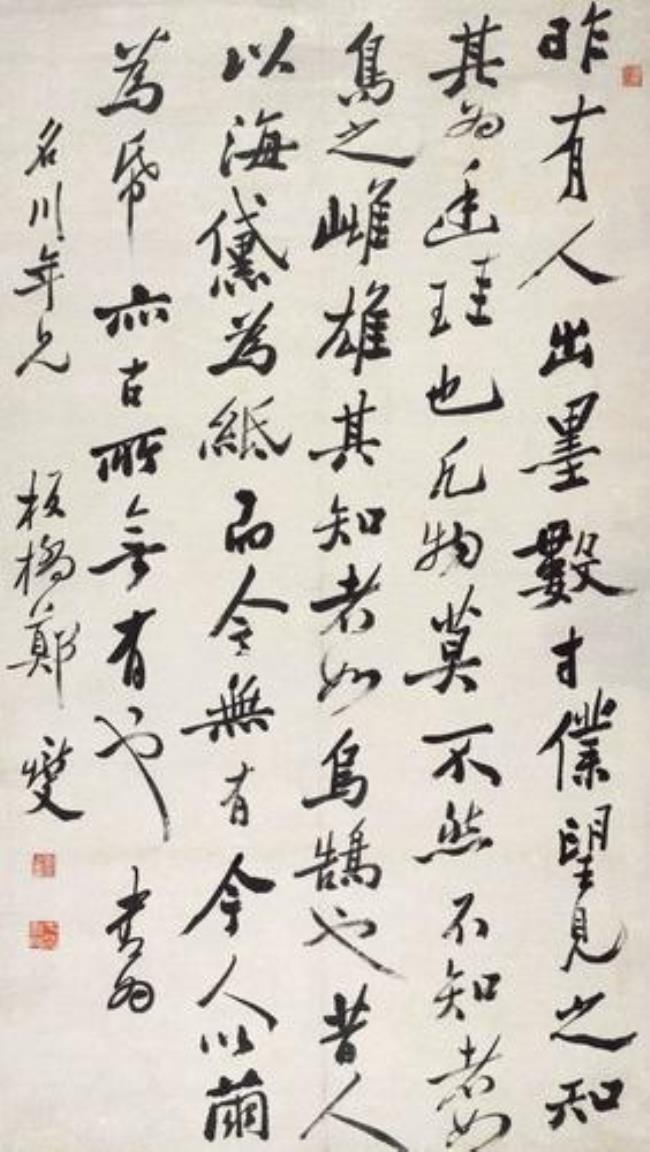 昨有人出墨數寸僕望見之知
其為廷珪也凡物莫不然不知者如
烏之雌雄其知者如烏鵠也昔人
以海黛為紙而今無有今人以繭
為帋亦古所無有也 書為
名川年兄 板橋鄭燮